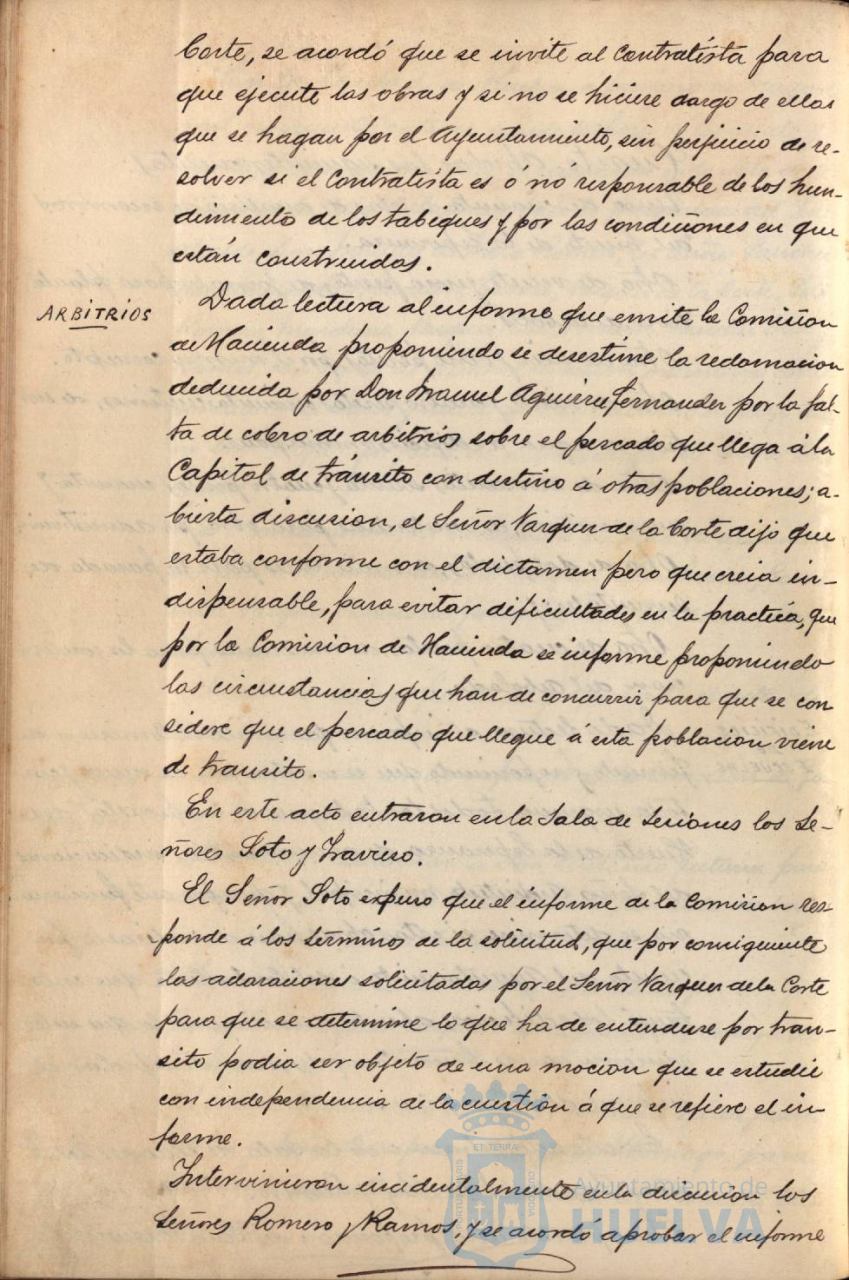 Corte, se acordó que se invite al Contratista para
que ejecute las obras y si no se hiciere cargo de ellas
que se hagan por el Ayuntamiento, sin perjuicio de re-
solver si el Contratista es ó nó responsable de los hun-
dimiento de los tabiques y por las condiciones en que
están construidos.
ARBITRIOS
Dada lectura al informe que emite la Comision
de Hacienda proponiendo se desestime la reclamacion
deducida por Don Manuel Aguirre Fernandez por la fal-
ta de cobro de arbitrios sobre el pescado que llega á la
Capital de tránsito con destino á otras poblaciones; a-
bierta discusion, el Señor Vazquez de la Corte dijo que
estaba conforme con el dictamen pero que creia in-
dispensable, para evitar dificultades en la practica, que
por la Comision de Hacienda se informe proponiendo
las circunstancias que han de concurrir para que se con
sidere que el pescado que llegue á esta poblacion viene
de transito.
En este acto entraron en la Sala de Sesiones los Se-
ñores Soto y Travieso.
El Señor Soto expuso que el informe de la Comision res-
ponde á los términos de la solicitud, que por consiguiente
las aclaraciones solicitadas por el Señor Vazquez de la Corte
para que se determine lo que ha de entenderse por tran-
sito podia ser objeto de una mocion que se estudie
con independencia de la cuestión á que se refiere el in-
forme.
Intervinieron incidentalmente en la discusion los
Señores Romero y Ramos, y se acordó aprobar el informe
ET TERRA
Ayuntamiento de
HUELVA